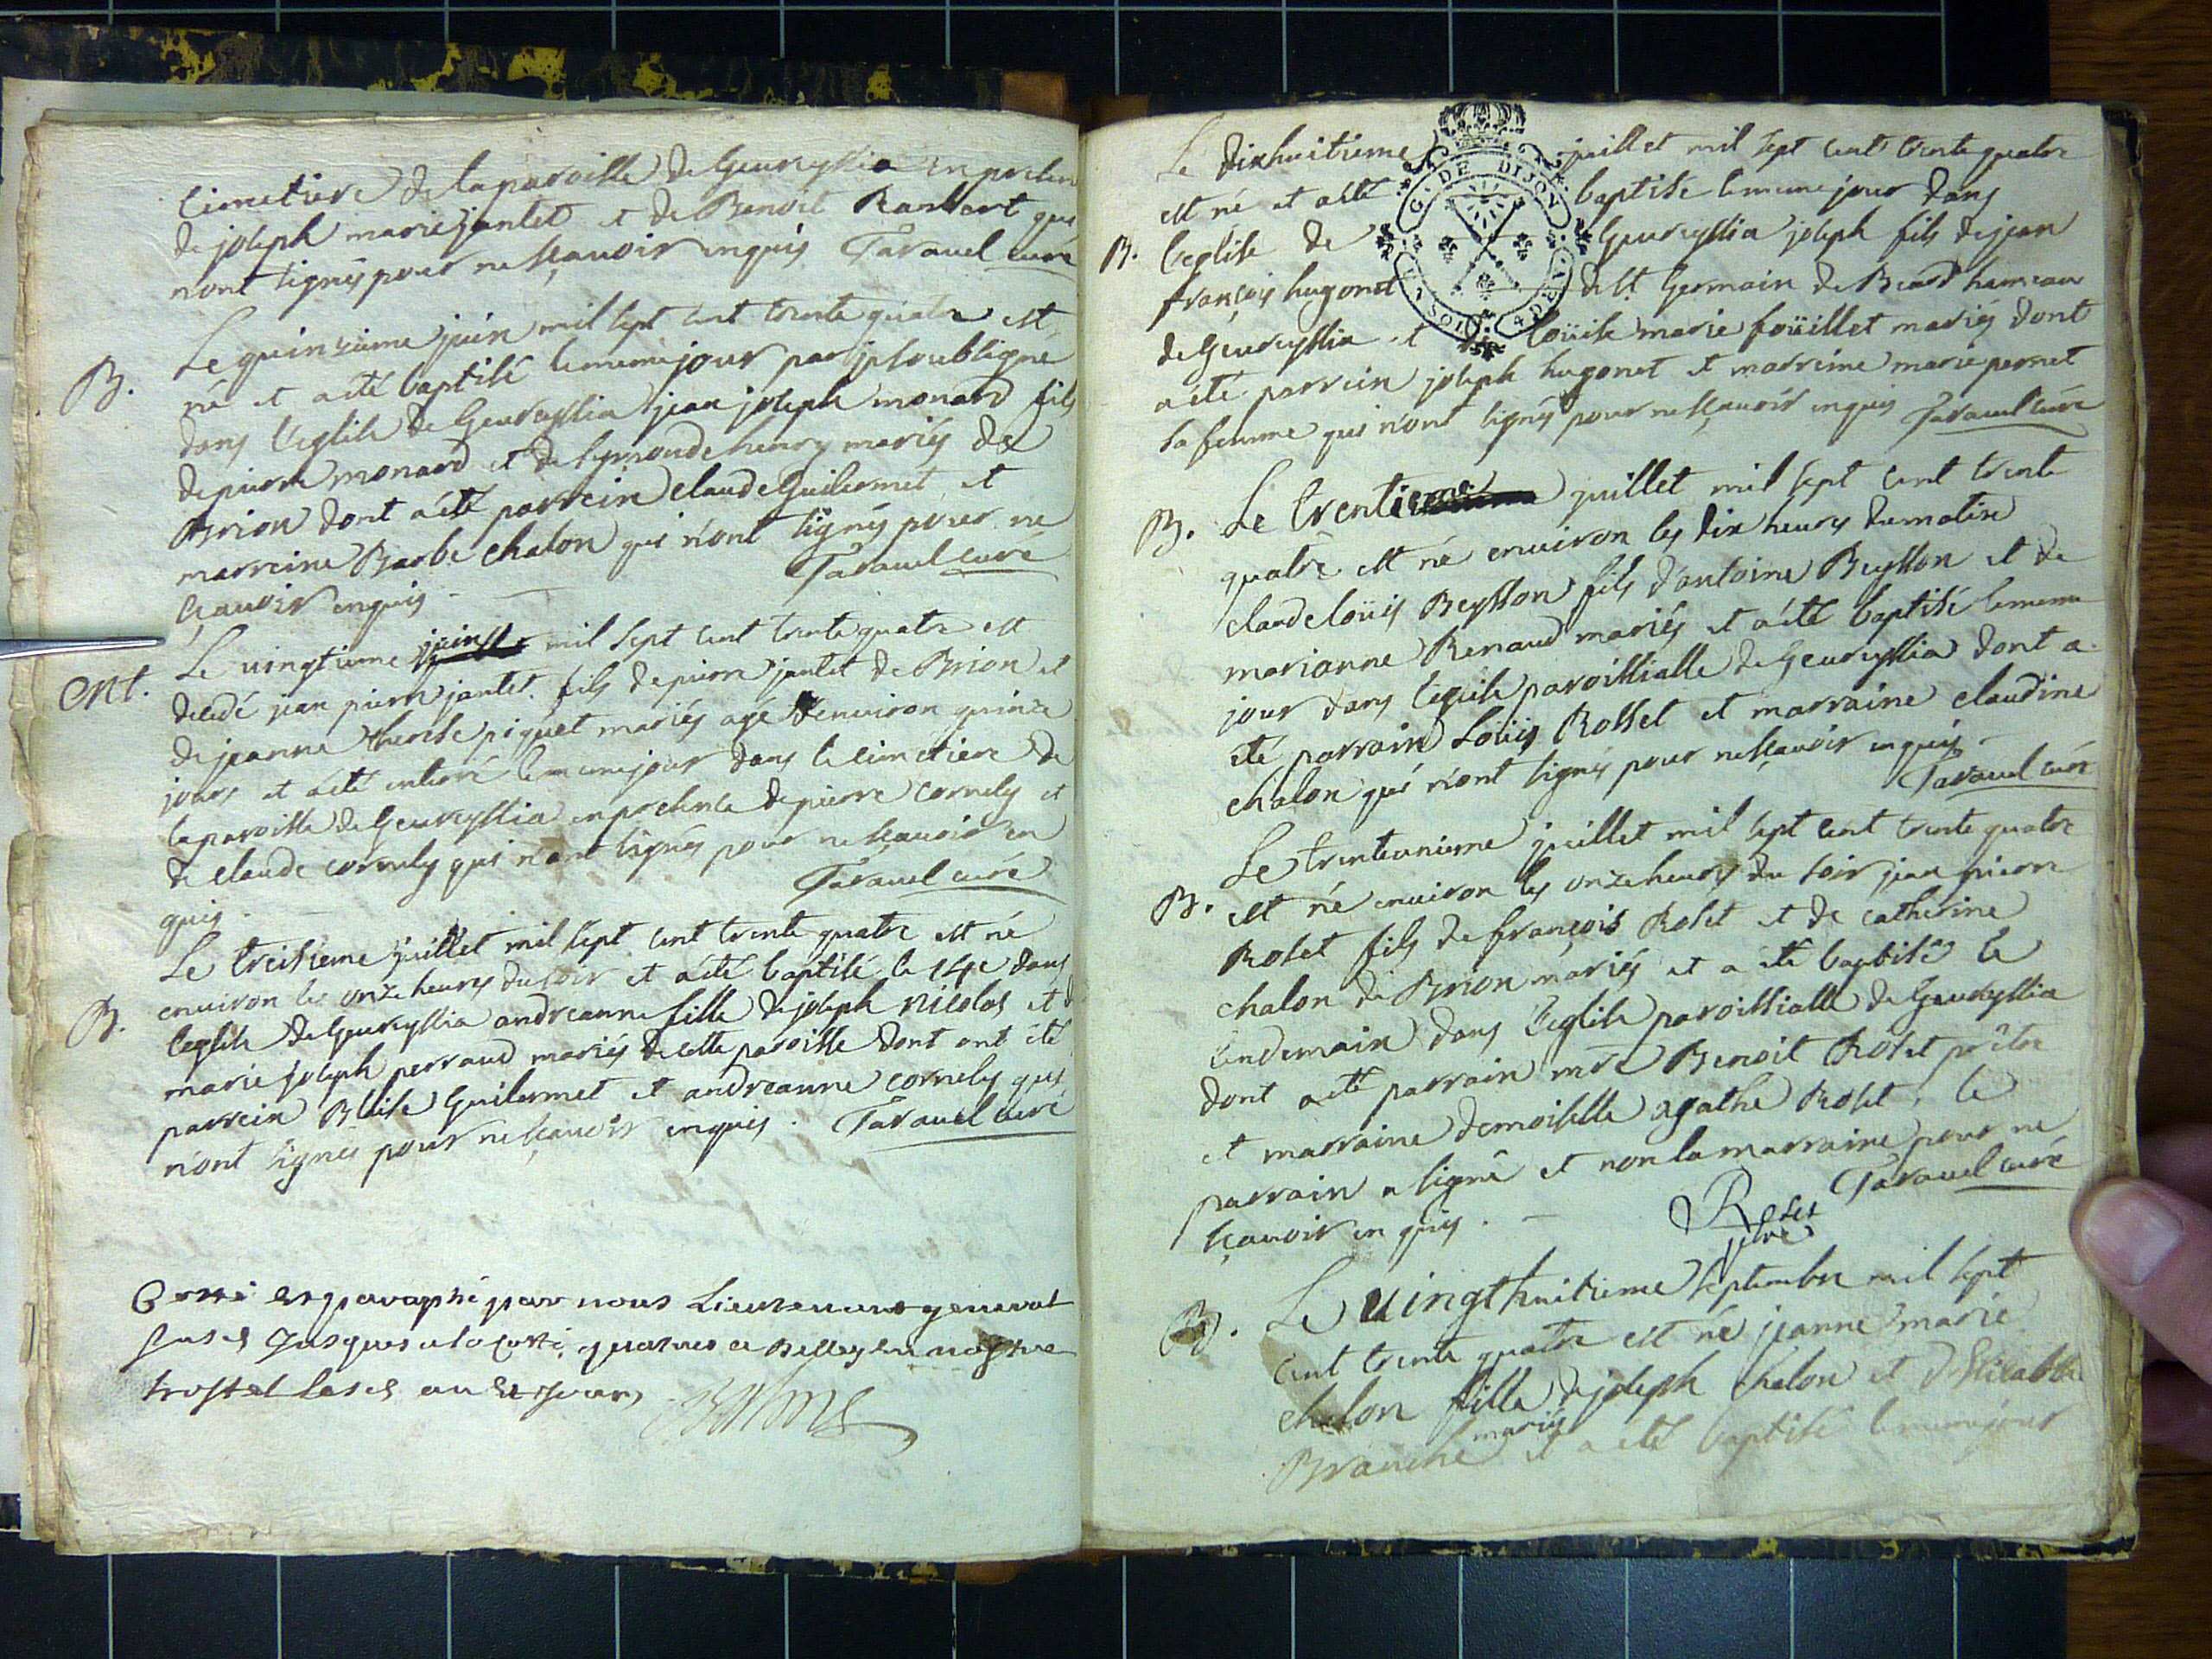 cimetiere de la paroisse de Geureyssia en presen
de joseph marie jantet et de Benoit Ransart qui
n'ont signés pour ne sçavoir enquis Taravel curé
B.
Le quinzieme juin mil sept cent trente quatre est
né et a été baptisé le meme jour par je soubsigné
dans l'eglise de Geureyssia jean joseph monard fils
de pierre monard et de henry mariés de
Brion dont a été parrein claude Guilermet et
marreine Barbe chalon qui n'ont signés pour ne
scavoir enquis. Taravel curé
Ent.
Le vingtieme juin mil sept cent trente quatre est
decedé jean pierre jantet fils de pierre jantet de Brion et
de jeanne therese piquet mariés agé d'environ quinze
jours et a été enterré le meme jour dans le cimetiere de
la paroisse de Geureyssia en presence de pierre cornely et
de claude cornely qui n'ont signés pour ne sçavoir en
quis. Taravel curé
B.
Le treisieme juillet mil sept cent trente quatre est né
environ les onze heures du soir et a été baptisé le 14e dans
l'eglise de Geureyssia andreanne fille de joseph nicolas et d
marie joseph perraud mariés de cette paroisse dont ont été
parrein Blaise Guilermet et andreanne cornely qui
n'ont signés pour ne sçavoir enquis. Taravel curé
Cotté et paraphé par nous Lieutenant general
jusques a la cotte quatre a Belley
Le dixhuitieme juillet mil sept cent trente quatre
G. DE DIJON
est né et a été baptisé le meme jour dans
B.
l'eglise de Geureyssia joseph fils de jean
françois hugonet de St. Germain de Beard hameau
4 DEN
de Geureyssia et de Loüise marie foüillet mariés dont
a été parrein joseph hugonet et marreine marie pernet
sa femme qui n'ont signés pour ne sçavoir enquis Taravel curé
B.
Le trentieme juillet mil sept cent trente
quatre est né environ les dix heures du matin
claude loüis Beysson fils d'antoine Beysson et de
marianne Renaud mariés et a été baptisé le meme
jour dans l'eglise paroissialle de Geureyssia dont a
été parrain Loüis Rosset et marraine claudine
chalon qui n'ont signés pour ne sçavoir enquis.
Taravel curé
B.
Le trenteunieme juillet mil sept cent trente quatre
est né environ les onze heures du soir jean pierre
Roset fils de françois Roset et de catherine
chalon de Brion mariés et a été baptisé le
lendemain dans l'eglise paroissialle de Geureyssia
dont a été parrain mre Benoit Roset prêtre
et marraine demoiselle agathe Roset, le
parrain a signé et non la marraine pour ne
sçavoir enquis. Roset ptre Taravel curé
B.
Le vingt huitieme septembre mil sept
cent trente quatre est né jeanne marie
chalon fille de joseph chalon et d'Elisabeth
Branche mariés et a été baptisé le meme jour